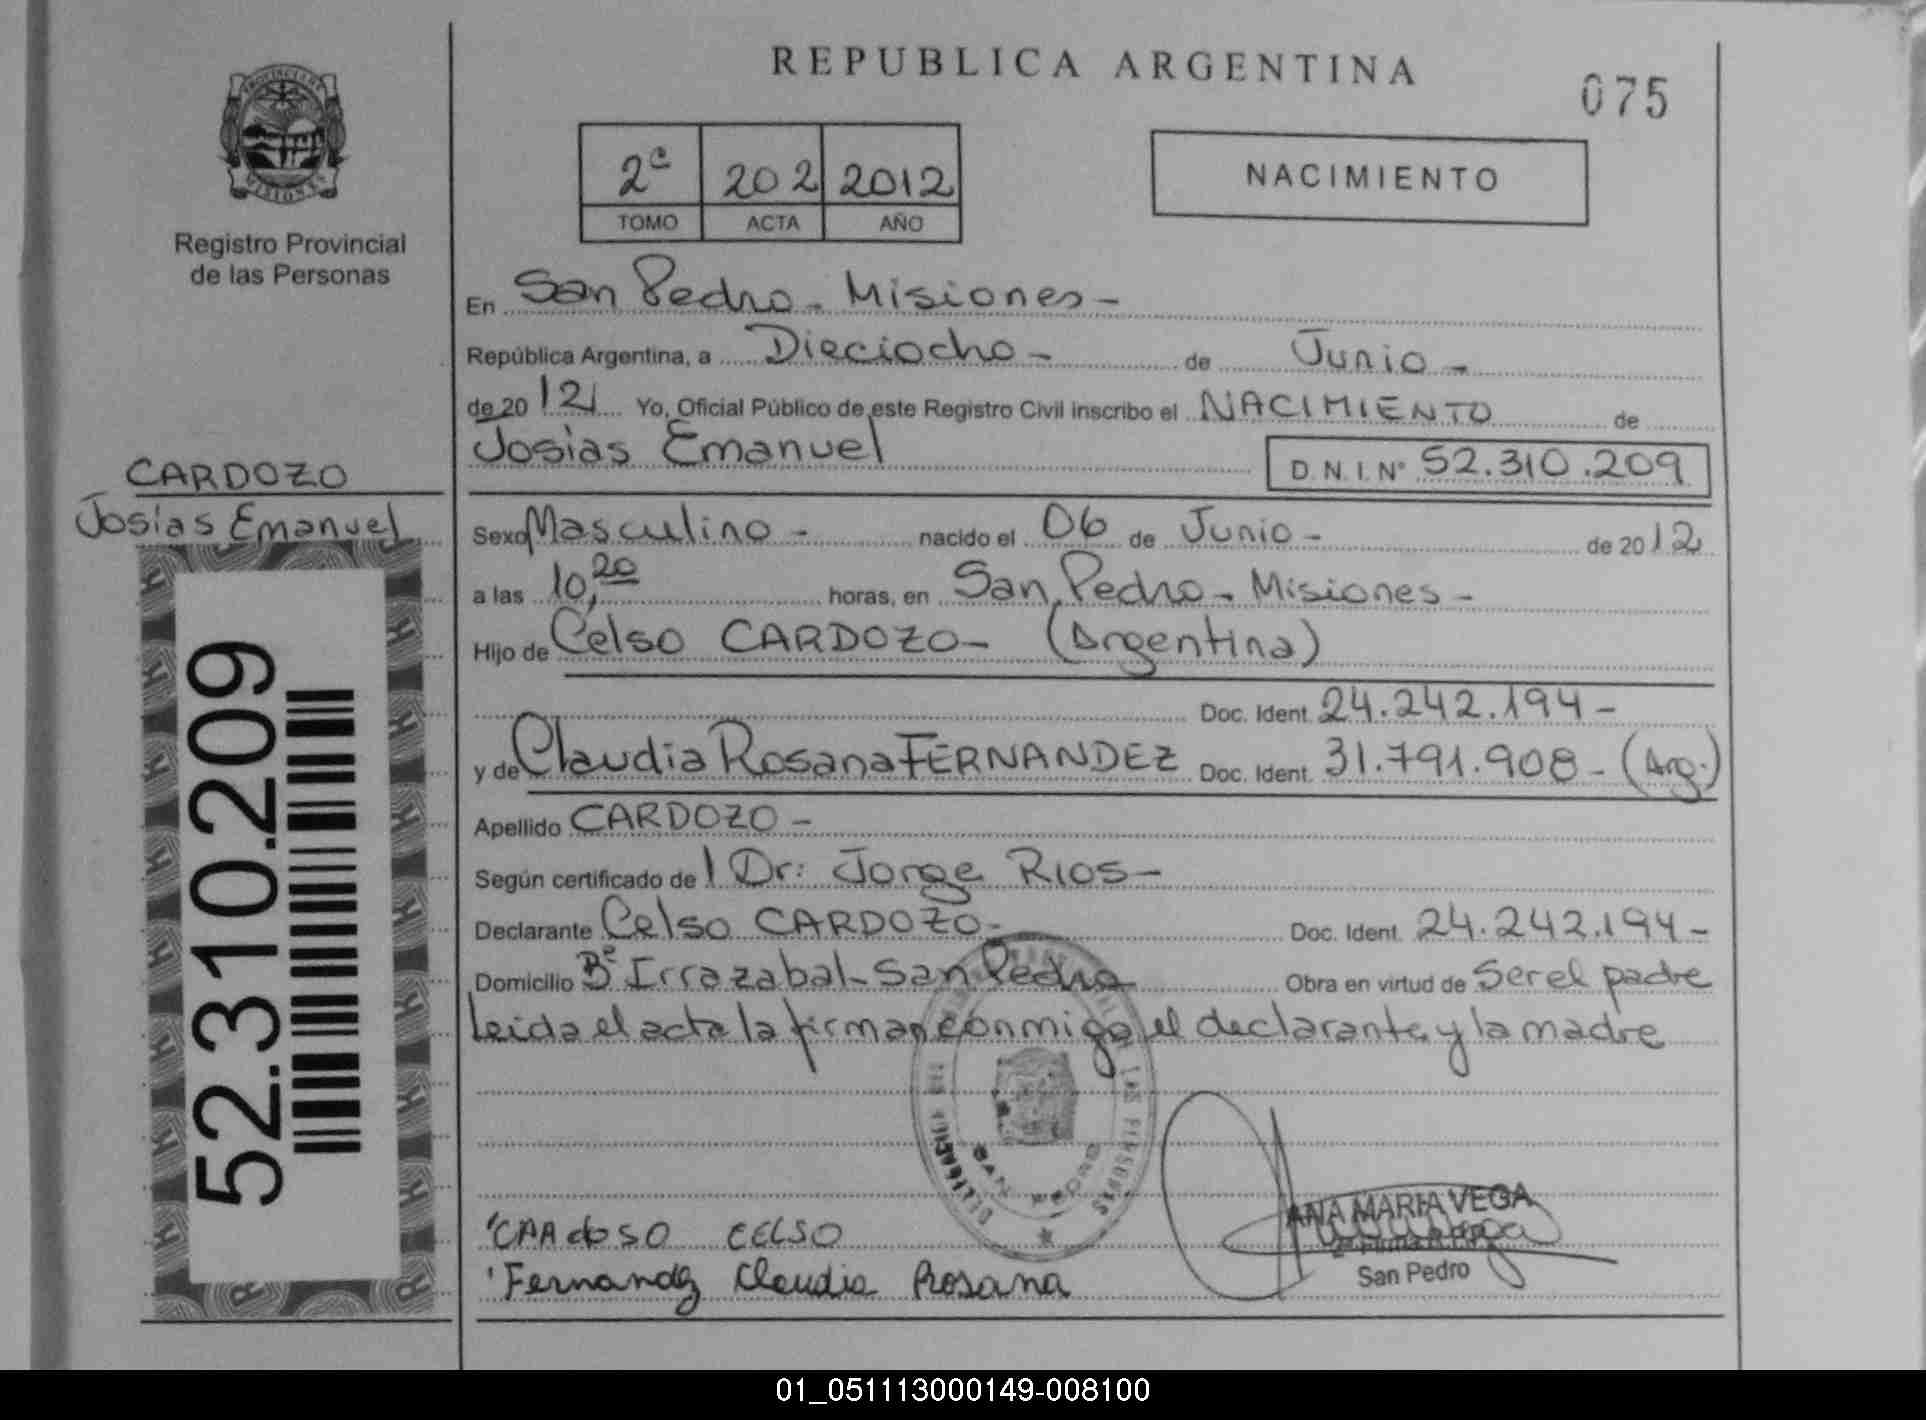 REPUBLICA ARGENTINA
075
PROVINCIA DE
MISIONES
Registro Provincial
de las Personas
2º 202 2012
TOMO ACTA AÑO
NACIMIENTO
En San Pedro - Misiones -
República Argentina, a Dieciocho - de Junio -
de 2012 Yo, Oficial Público de este Registro Civil inscribo el NACIMIENTO de
Josias Emanuel
D.N.I. Nº 52.310.209
CARDOZO
Josias Emanuel
52.310.209
Sexo Masculino - nacido el 06 de Junio - de 2012
a las 10,20 horas, en San Pedro - Misiones -
Hijo de Celso CARDOZO - (Argentina)
Doc. Ident. 24.242.194 -
y de Claudia Rosana FERNANDEZ Doc. Ident. 31.791.908 - (Arg.)
Apellido CARDOZO -
Según certificado de l Dr: Jorge Rios -
Declarante Celso CARDOZO - Doc. Ident. 24.242.194 -
Domicilio Bº Irrazabal - San Pedro Obra en virtud de Ser el padre
Leida el acta la firman conmigo el declarante y la madre
SAN PEDRO
CAAdoSO CELSO
Fernandz Claudia Rosana
ANA MARIA VEGA
San Pedro
01_051113000149-008100